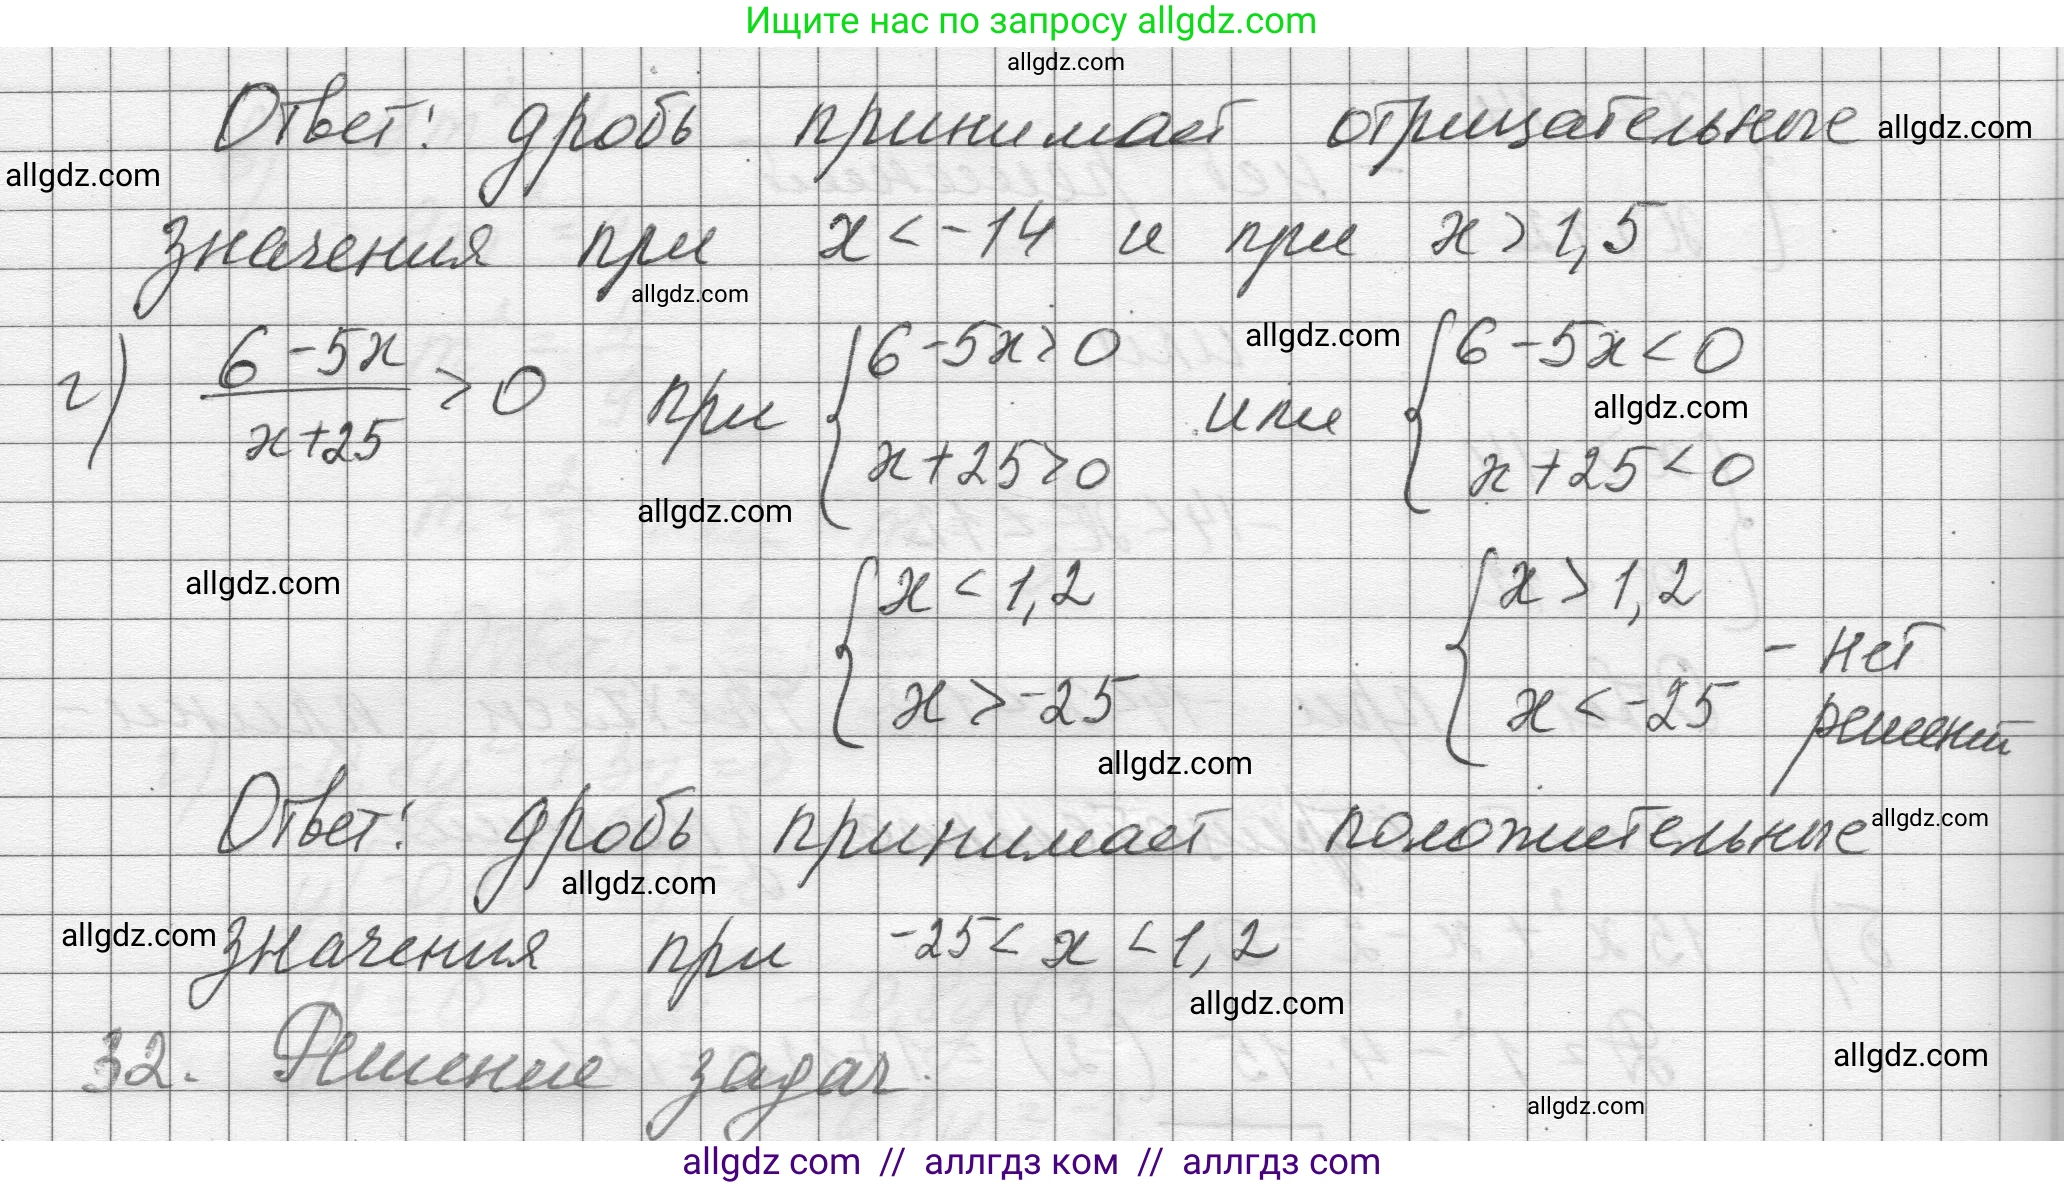 Ищите нас по запросу allgdz.com
allgdz.com
Ответ: дробь принимает отрицательные allgdz.com
allgdz.com
значения при x < -14 и при x > 1,5
allgdz.com
г) (6 - 5x)/(x + 25) > 0 при { 6 - 5x > 0 или { 6 - 5x < 0
allgdz.com
allgdz.com
x + 25 > 0 x + 25 < 0
allgdz.com
allgdz.com { x < 1,2 { x > 1,2
- нет
x > -25 x < -25 решений
allgdz.com
Ответ: дробь принимает положительные allgdz.com
allgdz.com
allgdz.com значения при -25 < x < 1,2
allgdz.com
32. Решение задач.
allgdz.com
allgdz.com
allgdz com // аллгдз ком // аллгдз com